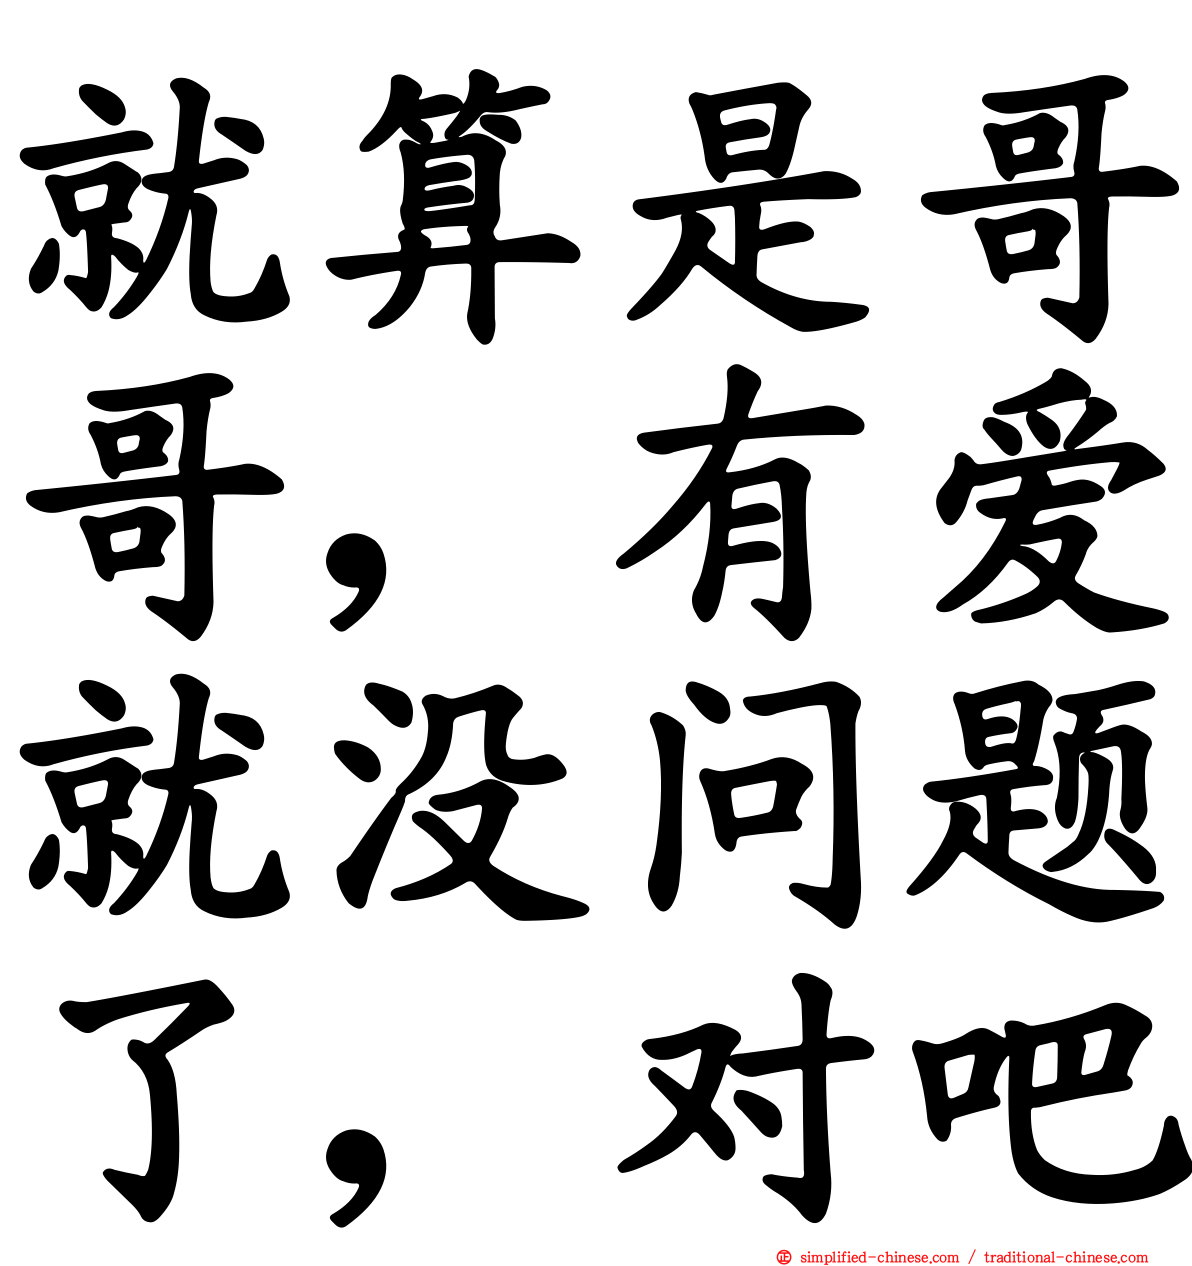 就算是哥
哥，有爱
就没问题
了，对吧
㊣ simplified-chinese.com / traditional-chinese.com